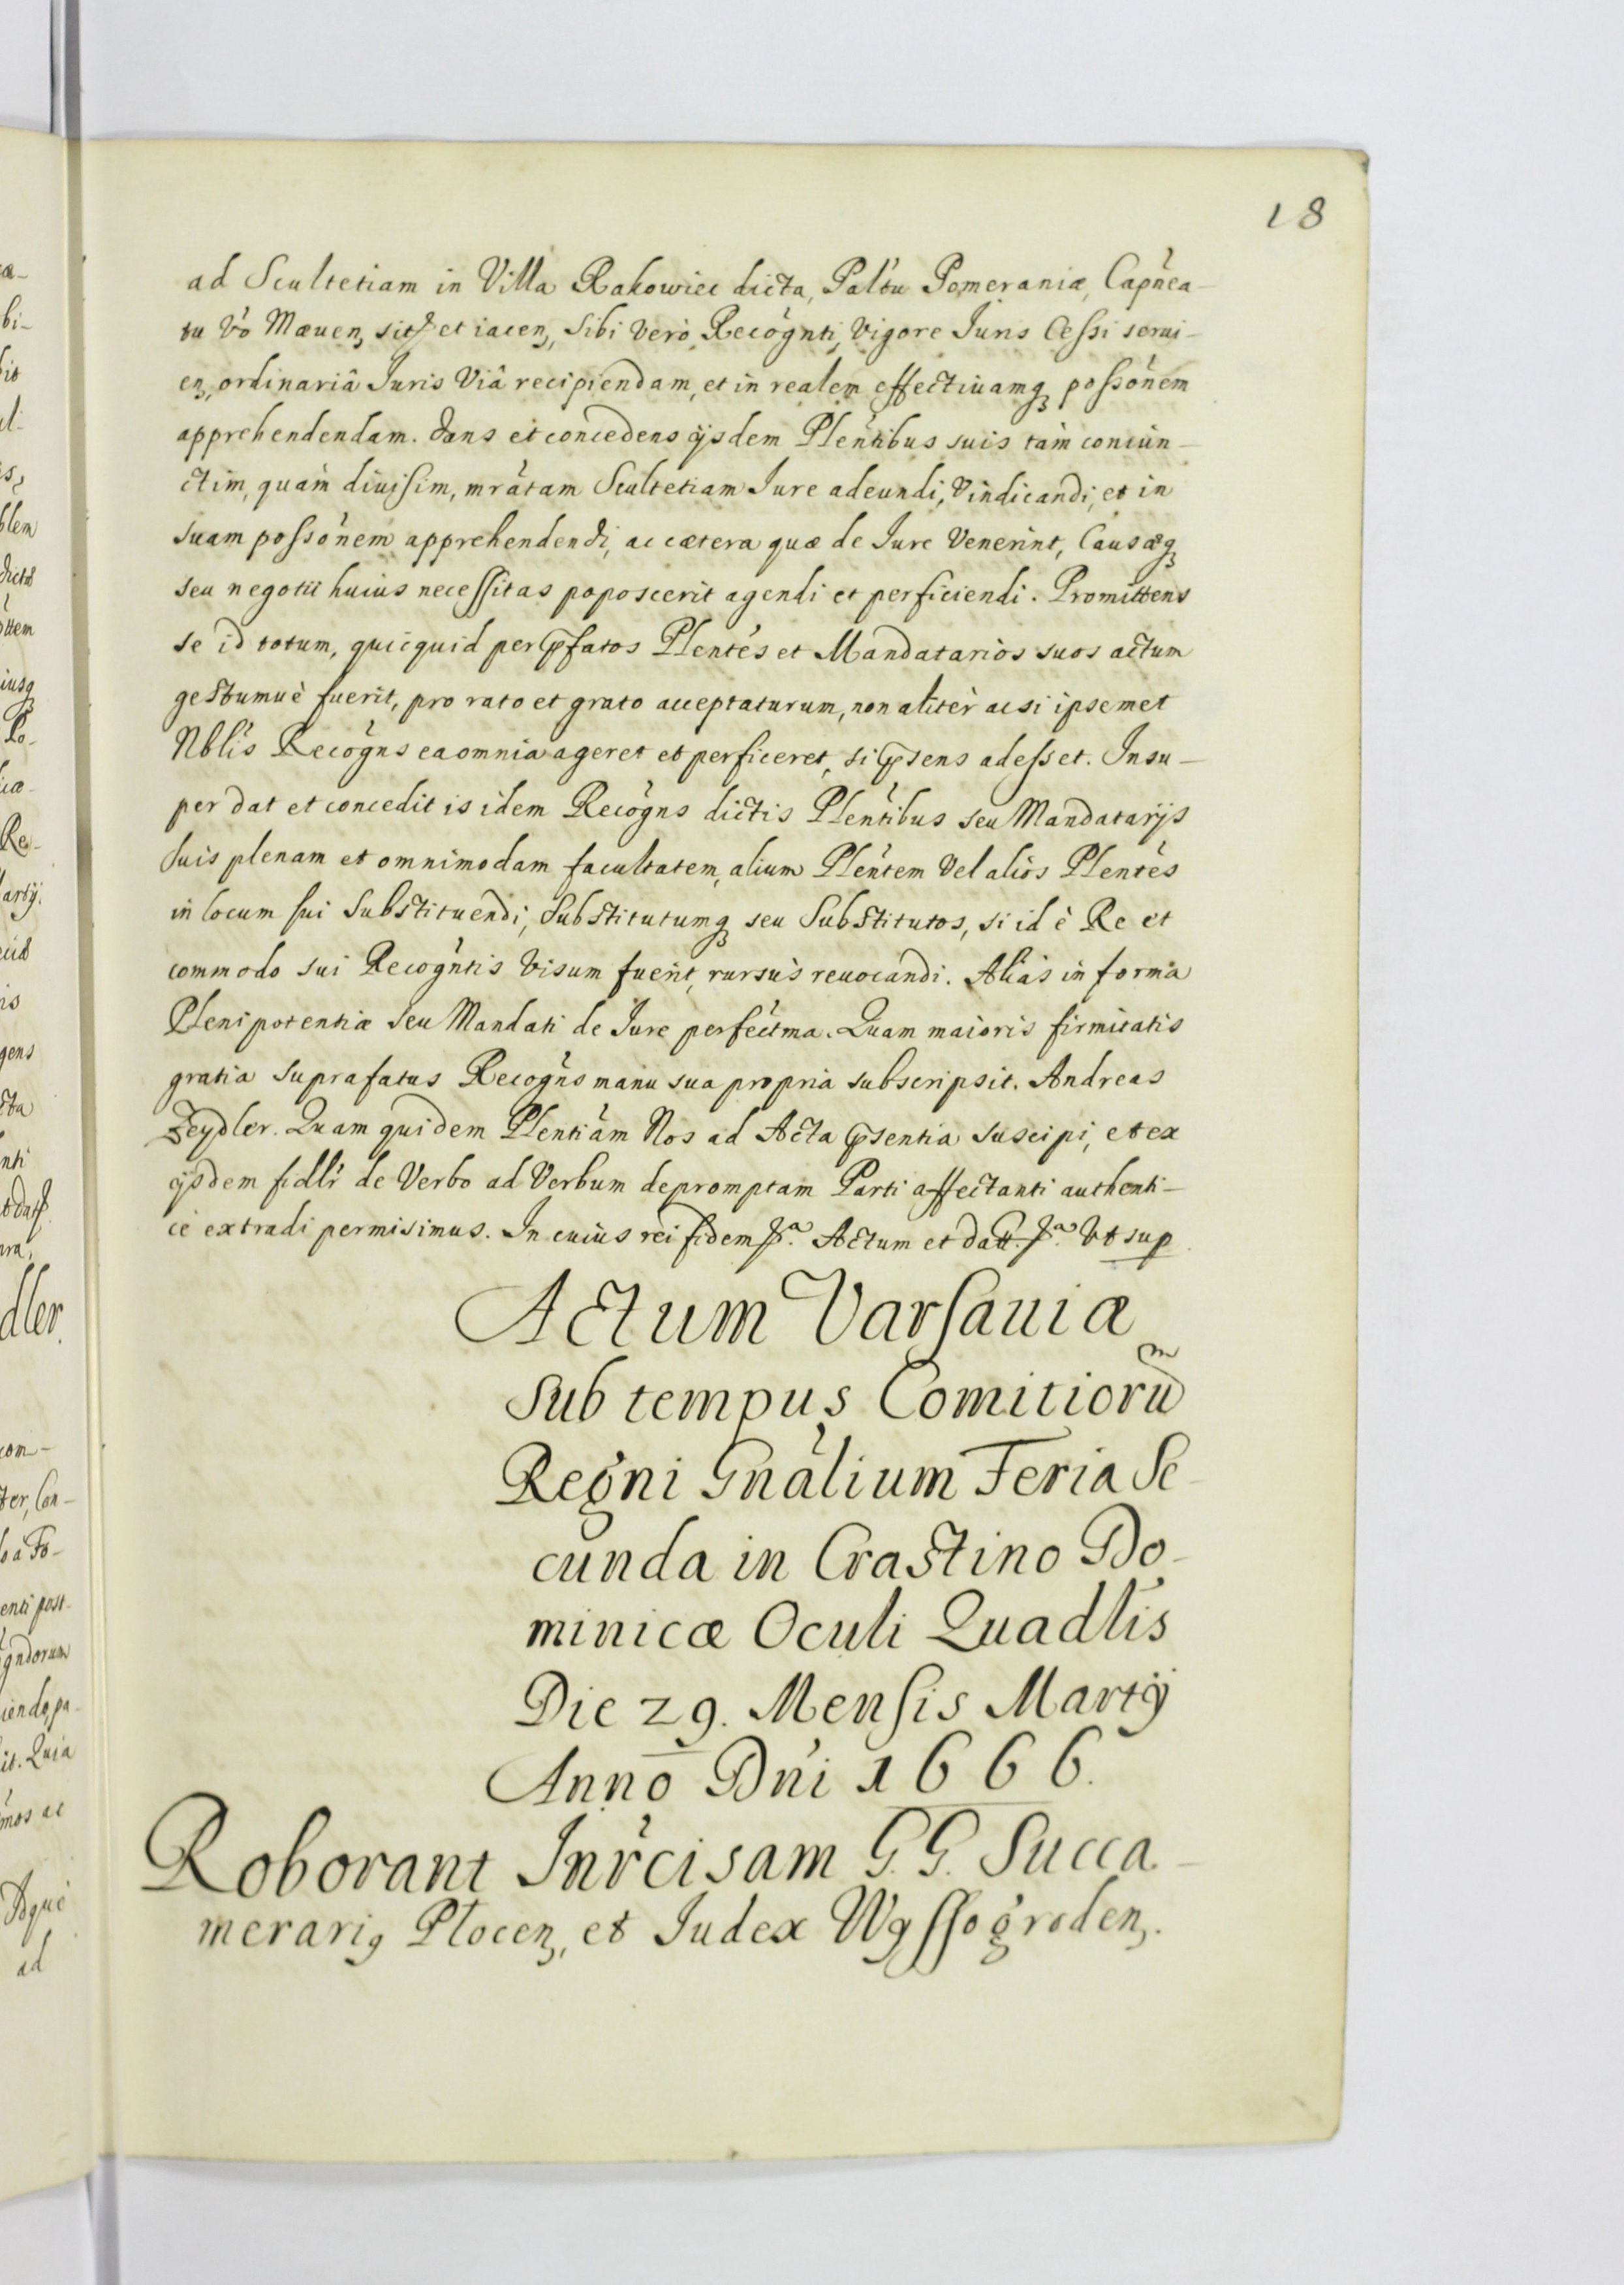 18
ad Scultetiam in Villa Rakowiec dicta, Pal̃tu Pomeraniæ, Capñea-
tu Vo Mæuen, sit et iacen, Sibi Verò Recogñti, Vigore Juris Cessi serui-
en, ordinariâ Juris Viâ recipiendam, et in realem effectiuamq possoñem
apprehendendam. Dans et concedens ijsdem Pleñtibus suis tàm coniùn-
ctim, quàm diuisim, mrãtam Scultetiam Jure adeundi, Vindicandi, et in
suam possoñem apprehendendi, ac cætera quæ de Jure Venerint, Causæq
seu negotii huius necessitas poposcerit agendi et perficiendi. Promittens
se id totum, quicquid per p̃fatos Pleñtes et Mandatariòs suos actum
gestumuè fuerit, pro rato et grato acceptaturum, non alitèr ac si ipsemet
Nblis Recogñs ea omnia ageret et perficeret, si p̃sens adesset. Insu-
per dat et concedit is idem Recogñs dictis Pleñtibus seu Mandatarijs
suis plenam et omnimodam facultatem, alium Pleñtem Vel aliòs Pleñtes
in locum sui Substituendi, Substitutumq seu Substitutos, si id è Re et
commodo sui Recogñtis Visum fuerit, rursùs reuocandi. Aliàs in forma
Plenipotentiæ seu Mandati de Jure perfectma. Quam maioris firmitatis
gratia suprafatus Recogñs manu sua propria subscripsit. Andreas
Zeydler. Quam quidem Pleñtiam Nos ad Acta p̃sentia suscipi, et ex
ijsdem fidlr de Verbo ad Verbum depromptam Parti affectanti authenti-
cè extradi permisimus. In cuius rei fidem Actum et datt. Vt sup
Actum Varsauiæ
Sub tempus Comitiorum
Regni Gnãlium Feria Se-
cunda in Crastino Do-
minicæ Oculi Quadlis
Die 29. Mensis Martij
Anno Dñi 1666.
Roborant Inr̃cisam G. G. Succa-
merari9 Plocen, et Judex Wyssogroden.